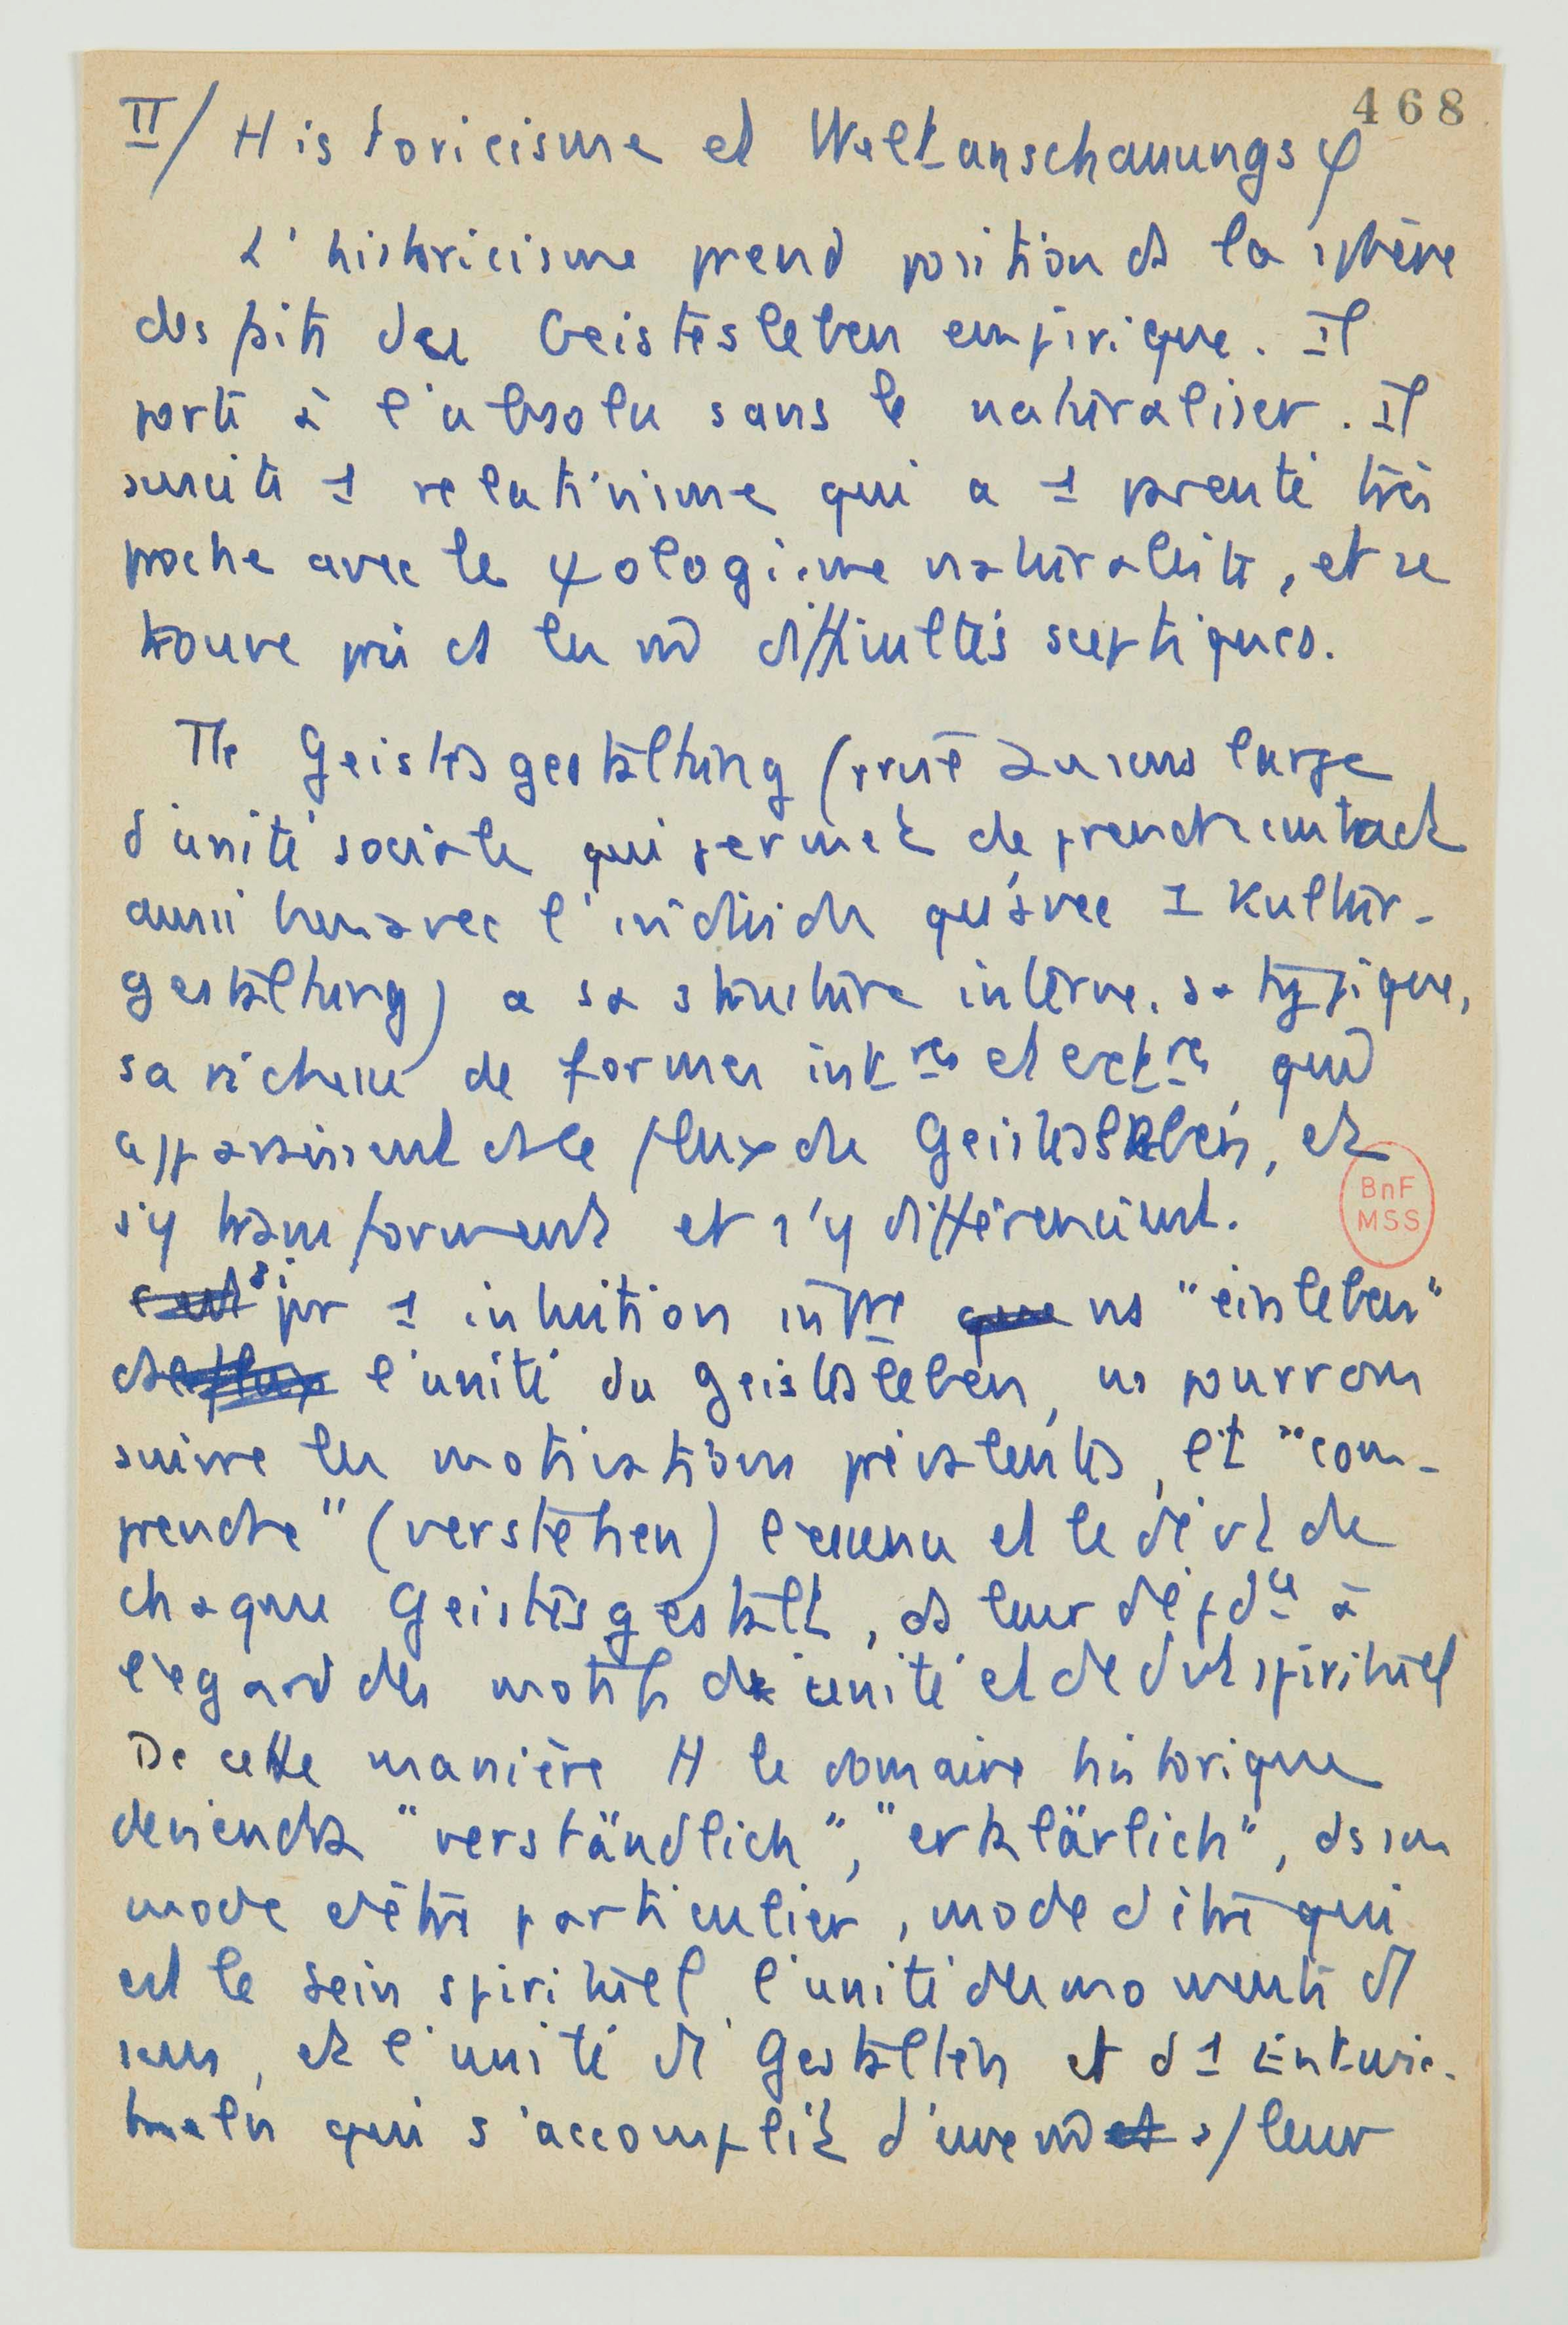 468
II/ Historicisme et Weltanschauungsφ
L'historicisme prend position ds la sphère
des faits du Geistesleben empirique. Il
porte à l'absolu sans le naturaliser. Il
suscite 1 relativisme qui a 1 parenté très
proche avec le ψologisme naturaliste, et se
trouve pris ds les m̂ difficultés sceptiques.
Tte Geistesgestaltung (au sens large
d'unité sociale qui permet de prendre contact
aussi bien avec l'individu qu'avec 1 Kultur-
gestaltung) a sa structure interne, sa typique,
sa richesse de formes intres et extres, qui
apparaissent ds le flux du Geistesleben, et
s'y transforment et s'y différencient.
si pr 1 intuition intre ns "einleben"
ds l'unité du Geistesleben, ns pourrons
suivre les motivations prévalentes, et "com-
prendre" (verstehen) l'essence et le dévt de
chaque Geistesgestalt, ds leur dépdce à
l'égard des motifs d'unité et de dvt spirituel
De cette manière tt le domaine historique
deviendra "verständlich", "erklärlich", ds son
mode d'être particulier, mode d'être qui
est le Sein spirituel, l'unité des moments de
sens, et l'unité de Gestalten et d1 Entwic-
keln qui s'accomplit d'une m̂ s/ leur
BnF
MSS